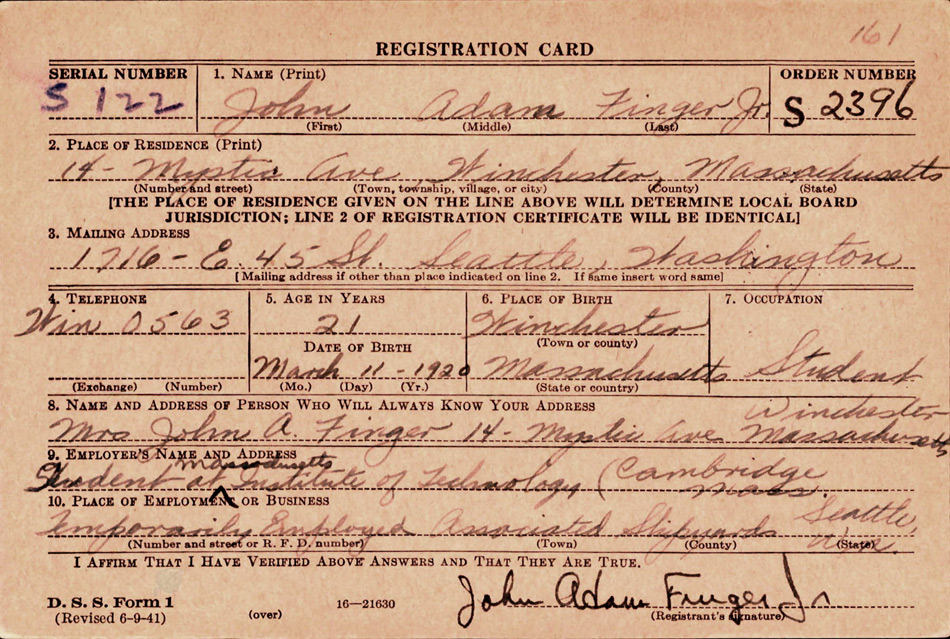 161
REGISTRATION CARD
SERIAL NUMBER 1. NAME (Print) ORDER NUMBER
S 122 John Adam Finger Jr. S 2396
(First) (Middle) (Last)
2. PLACE OF RESIDENCE (Print)
14- Mystic Ave Winchester, Massachusetts
(Number and street) (Town, township, village, or city) (County) (State)
[THE PLACE OF RESIDENCE GIVEN ON THE LINE ABOVE WILL DETERMINE LOCAL BOARD
JURISDICTION; LINE 2 OF REGISTRATION CERTIFICATE WILL BE IDENTICAL]
3. MAILING ADDRESS
1716- E. 45 St. Seattle, Washington
[Mailing address if other than place indicated on line 2. If same insert word same]
4. TELEPHONE 5. AGE IN YEARS 6. PLACE OF BIRTH 7. OCCUPATION
Win 0563 21 Winchester
(Town or county)
DATE OF BIRTH
March 11-1920 Massachusetts Student
(Exchange) (Number) (Mo.) (Day) (Yr.) (State or country)
8. NAME AND ADDRESS OF PERSON WHO WILL ALWAYS KNOW YOUR ADDRESS Winchester
Mrs John A. Finger 14- Mystic Ave Massachusetts
9. EMPLOYER'S NAME AND ADDRESS
Massachusetts
Student at Institute of Technology (Cambridge
Mass.
10. PLACE OF EMPLOYMENT OR BUSINESS
Temporarily Employed Associated Shipyards Seattle,
(Number and street or R. F. D. number) (Town) (County) (State)
I AFFIRM THAT I HAVE VERIFIED ABOVE ANSWERS AND THAT THEY ARE TRUE.
John Adam Finger Jr
D. S. S. Form 1
(Revised 6-9-41) (over) 16—21630 (Registrant's signature)